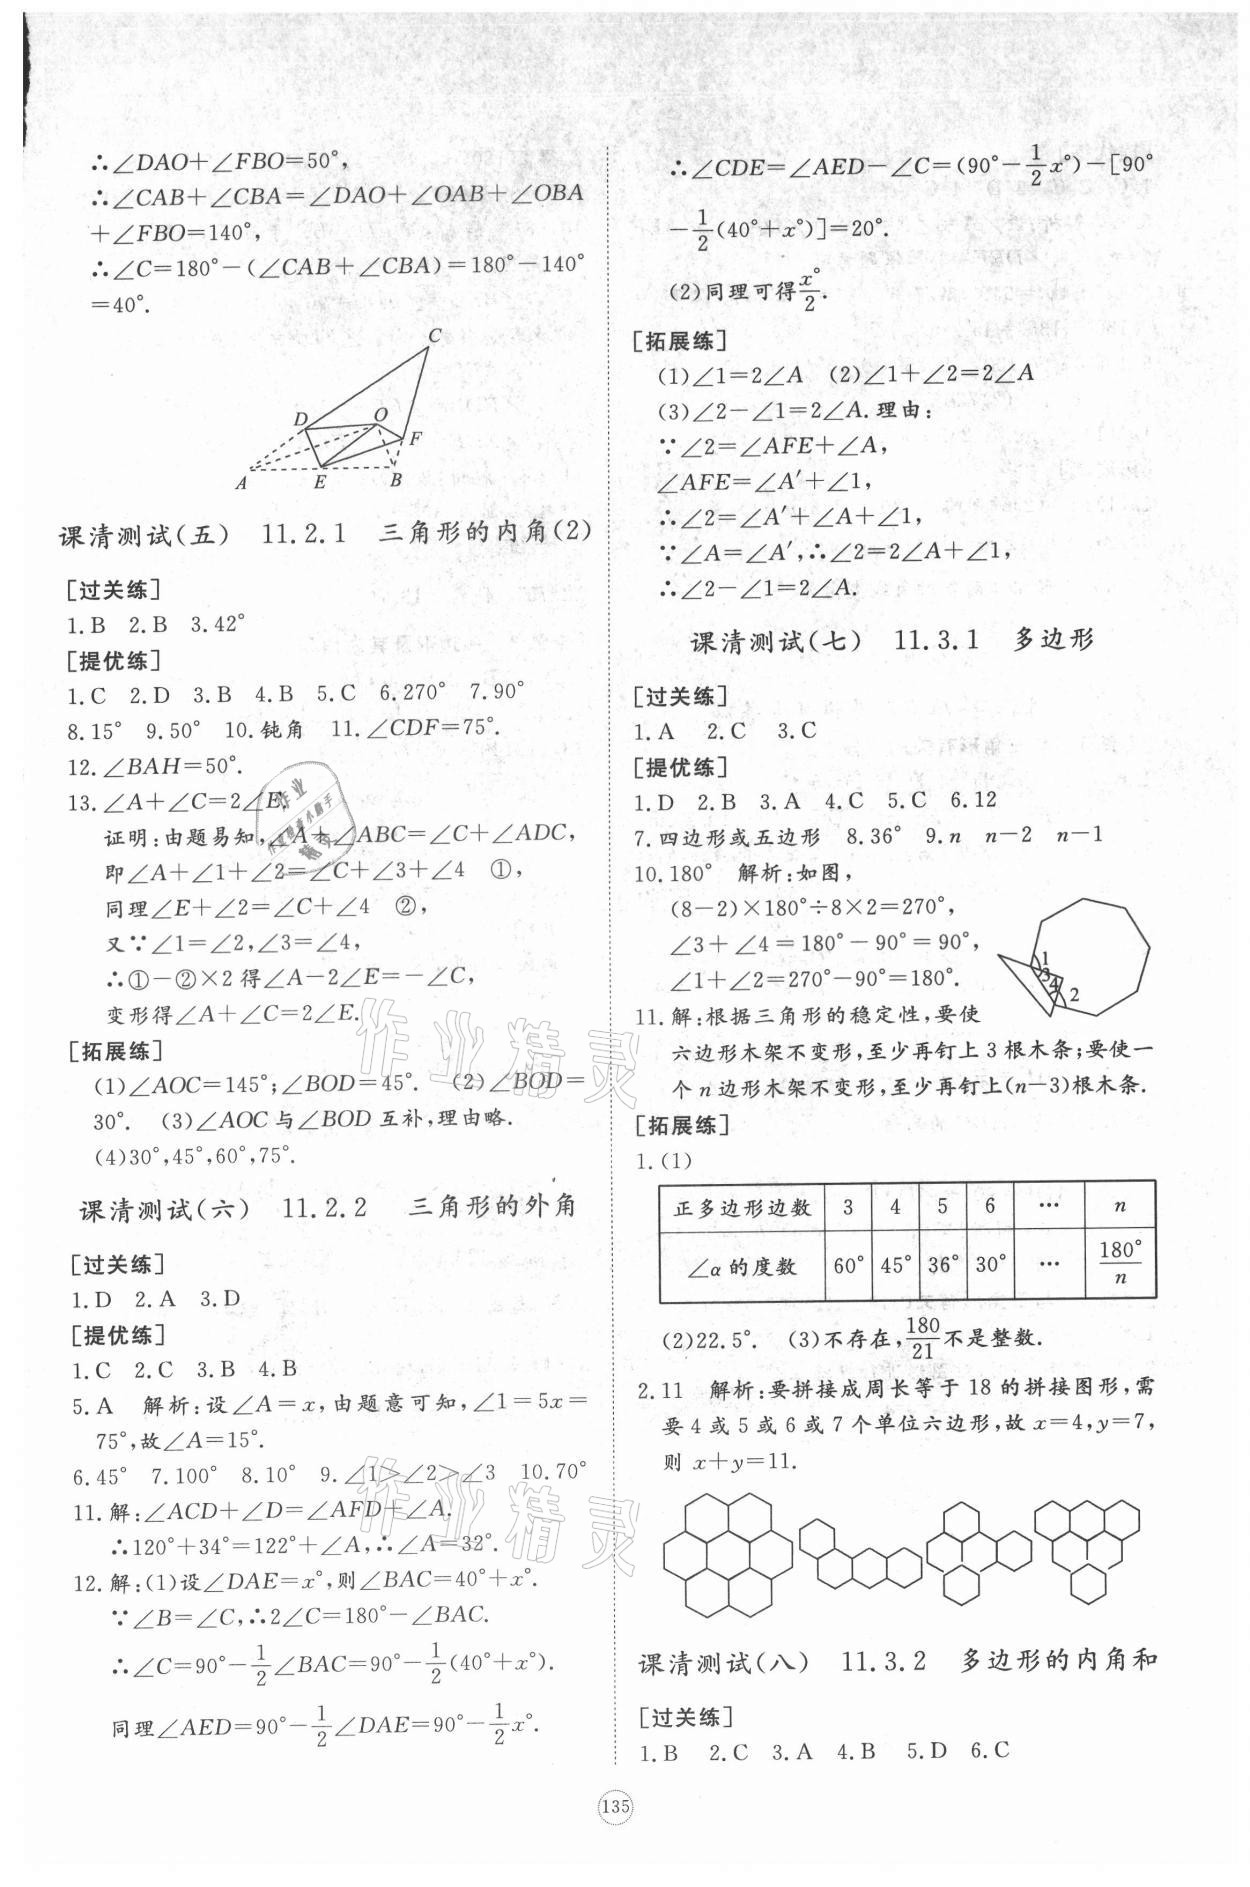 ∴∠DAO+∠FBO=50°,
∴∠CAB+∠CBA=∠DAO+∠OAB+∠OBA
+∠FBO=140°,
∴∠C=180°-(∠CAB+∠CBA)=180°-140°
=40°.
C
D
O
F
A
E
B
课清测试(五) 11.2.1 三角形的内角(2)
[过关练]
1.B 2.B 3.42°
[提优练]
1.C 2.D 3.B 4.B 5.C 6.270° 7.90°
8.15° 9.50° 10.钝角 11.∠CDF=75°.
12.∠BAH=50°.
13.∠A+∠C=2∠E.
证明:由题易知,∠A+∠ABC=∠C+∠ADC,
即∠A+∠1+∠2=∠C+∠3+∠4 ①,
同理∠E+∠2=∠C+∠4 ②,
又∵∠1=∠2,∠3=∠4,
∴①-②×2得∠A-2∠E=-∠C,
变形得∠A+∠C=2∠E.
[拓展练]
(1)∠AOC=145°;∠BOD=45°. (2)∠BOD=
30°. (3)∠AOC与∠BOD互补,理由略.
(4)30°,45°,60°,75°.
课清测试(六) 11.2.2 三角形的外角
[过关练]
1.D 2.A 3.D
[提优练]
1.C 2.C 3.B 4.B
5.A 解析:设∠A=x,由题意可知,∠1=5x=
75°,故∠A=15°.
6.45° 7.100° 8.10° 9.∠1>∠2>∠3 10.70°
11.解:∠ACD+∠D=∠AFD+∠A.
∴120°+34°=122°+∠A,∴∠A=32°.
12.解:(1)设∠DAE=x°,则∠BAC=40°+x°.
∵∠B=∠C,∴2∠C=180°-∠BAC.
∴∠C=90°-1/2∠BAC=90°-1/2(40°+x°).
同理∠AED=90°-1/2∠DAE=90°-1/2x°.
∴∠CDE=∠AED-∠C=(90°-1/2x°)-[90°
-1/2(40°+x°)]=20°.
(2)同理可得x°/2.
[拓展练]
(1)∠1=2∠A (2)∠1+∠2=2∠A
(3)∠2-∠1=2∠A.理由:
∵∠2=∠AFE+∠A,
∠AFE=∠A′+∠1,
∴∠2=∠A′+∠A+∠1,
∵∠A=∠A′,∴∠2=2∠A+∠1,
∴∠2-∠1=2∠A.
课清测试(七) 11.3.1 多边形
[过关练]
1.A 2.C 3.C
[提优练]
1.D 2.B 3.A 4.C 5.C 6.12
7.四边形或五边形 8.36° 9.n n-2 n-1
10.180° 解析:如图,
(8-2)×180°÷8×2=270°,
∠3+∠4=180°-90°=90°,
∠1+∠2=270°-90°=180°.
1
3
4
2
11.解:根据三角形的稳定性,要使
六边形木架不变形,至少再钉上3根木条;要使一
个n边形木架不变形,至少再钉上(n-3)根木条.
[拓展练]
1.(1)
正多边形边数 3 4 5 6 … n
∠α的度数 60° 45° 36° 30° … 180°/n
(2)22.5°. (3)不存在,180/21不是整数.
2.11 解析:要拼接成周长等于18的拼接图形,需
要4或5或6或7个单位六边形,故x=4,y=7,
则x+y=11.
课清测试(八) 11.3.2 多边形的内角和
[过关练]
1.B 2.C 3.A 4.B 5.D 6.C
135
作业精灵
作业精灵